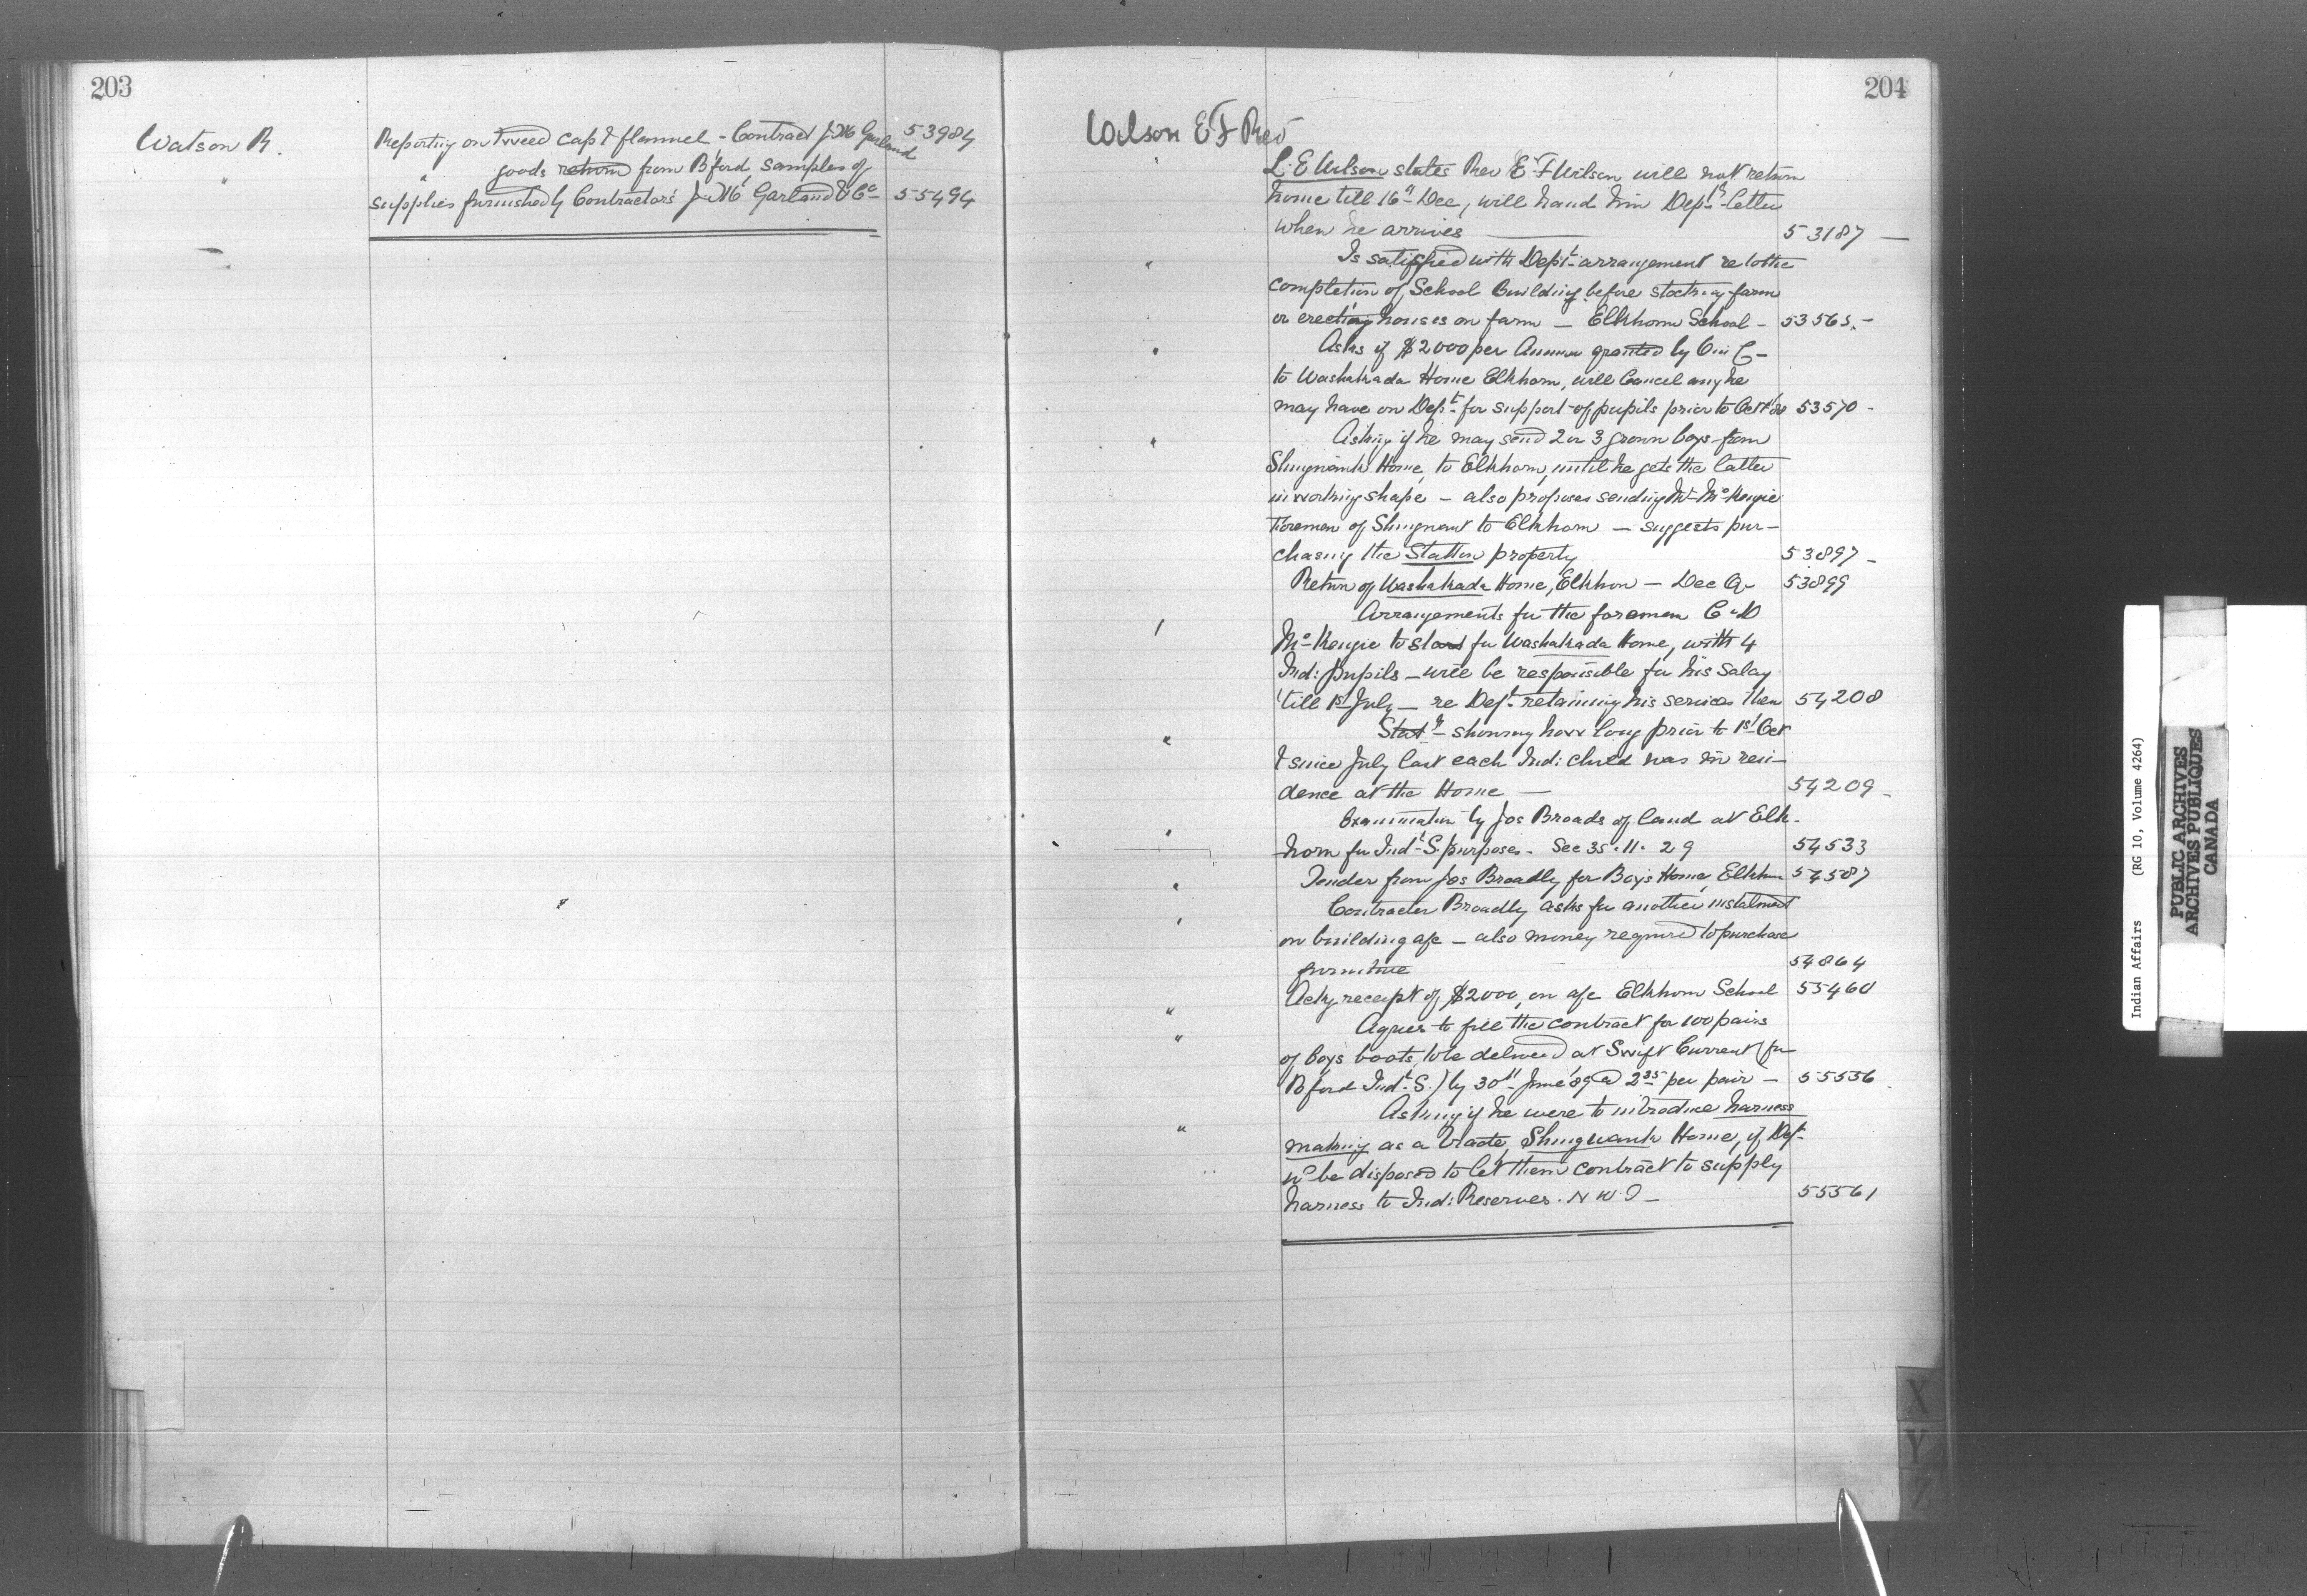 203
Watson R. Reporting on Tweed cap & flannel - Contract J. M. Garland 53984
" goods return from B'ford, samples of
supplies furnished by Contractors J. M. Garland & Co 55494
204
Wilson E F Rev
L. E Wilson states Rev E. F Wilson will not return
home till 16th Dec, will hand him Dept's letter
when he arrives — 53187 —
" Is satisfied with Dept arrangement re to the
completion of School Building before stocking farm
or erecting houses on farm — Elkhorn School - 53565. -
" Asks if $2000 per Annum granted by O in C -
to Washakada Home Elkhorn, will Cancel any he
may have on Dept for support of pupils prior to Oct 53570 -
" Asking if he may send 2 or 3 grown boys from
Shingwauk Home, to Elkhorn, until he gets the latter
in working shape - also proposes sending Mr McKenzie
Foreman of Shingwauk to Elkhorn — suggests pur-
chasing the property 53897 -
Return of Washakada Home, Elkhorn — Dec Qr 53899
Arrangements for the foreman
McKenzie to start for Washakada Home, with 4
Ind: pupils - will be responsible for his salary
'till 1st July — re Dept retaining his services then 54208
" Statt - showing how long prior to 1st Oct
& since July last each Ind: child was in resi-
dence at the Home — 54209 -
" Examination by Jos Broads of land at Elk-
horn for Indl S. purposes - See 35.11.29 54533
" Tender from Jos Broadly for Boys Home, Elkhorn 54587
" Contractor Broadly asks for another instalment
on building a/c - also money required to purchase
furniture 54864
" Ackg receipt of $2000, on a/c Elkhorn School 55460
" Agrees to fill the contract for 100 pairs
of boys boots, to be delivered at Swift Current (for
B'ford Indl S.) by 30th June '89 @ 2.35 per pair - 55556
" Asking if he were to introduce harness
making as a trade Shingwauk Home, if Dept
wd be disposed to let them contract to supply
harness to Ind: Reserves. N W T — 55561
X
Y
Z
Indian Affairs (RG 10, Volume 4264)
PUBLIC ARCHIVES
ARCHIVES PUBLIQUES
CANADA